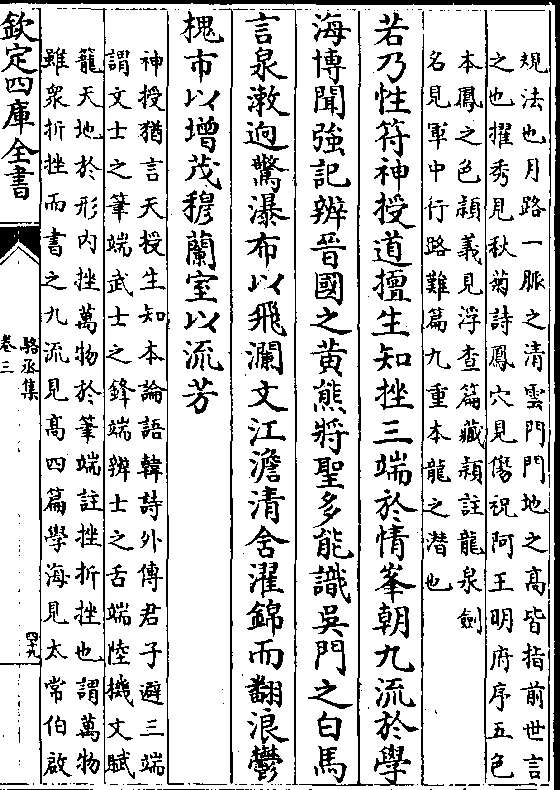 規法也月路一脈之清雲門門地之高皆指前世言
之也擢秀見秋菊詩鳳穴見傷祝阿王明府序五色
本鳳之色頳義見浮査篇藏頴註龍泉劍
名見軍中行路難篇九重本龍之潛也
若乃性符神授道擅生知挫三端於情峯朝九流於學
海博聞強記辨晉國之黄熊將聖多能識吳門之白馬
言泉潄迥驚瀑布以飛瀾文江澹清含濯錦而翻浪鬱
槐市以增茂穆蘭室以流芳
神授猶言天授生知本論語韓詩外傳君子避三端
謂文士之筆端武士之鋒端辨士之舌端陸機文賦
籠天地於形内挫萬物於筆端註挫折挫也謂萬物
雖衆折挫而書之九流見高四篇學海見太常伯啟
欽定四庫全書
駱丞集
卷三
四十九